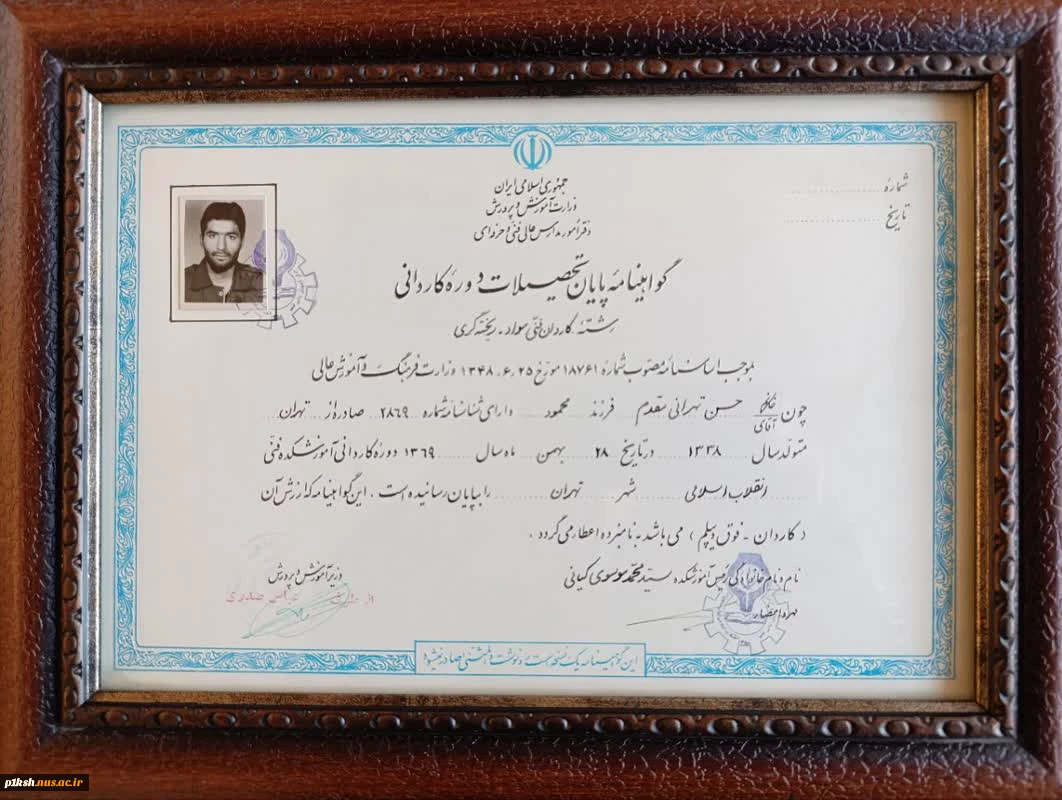 جمهوری اسلامی ایران
وزارت آموزش و پرورش
دفتر امور مدارس عالی فنی و حرفه‌ای
شمارهٔ
تاریخ
گواهینامهٔ پایان تحصیلات دورهٔ کاردانی
رشتهٔ کاردان فنی مواد - ریخته گری
بموجب اساسنامهٔ مصوب شمارهٔ ۱۸۷۶۱ مورخ ۱۳۴۸.۶.۲۵ وزارت فرهنگ و آموزش عالی
چون خانم آقای حسن تهرانی مقدم فرزند محمود دارای شناسنامه شماره ۲۸۶۹ صادره از تهران
متولد سال ۱۳۳۸ در تاریخ ۲۸ بهمن ماه سال ۱۳۶۹ دورهٔ کاردانی آموزشکده فنی
انقلاب اسلامی شهر تهران را بپایان رسانیده است ، این گواهینامه که ارزش آن
( کاردان - فوق دیپلم ) می باشد به نامبرده اعطا می گردد .
نام و نام خانوادگی رئیس آموزشکده سید محمد موسوی کیانی
مهر و امضاء
وزیر آموزش و پرورش
از طرف عباس صدری
این گواهینامه یک نسخه است و رونوشت یا المثنی صادر نمیشود
p1ksh.nus.ac.ir